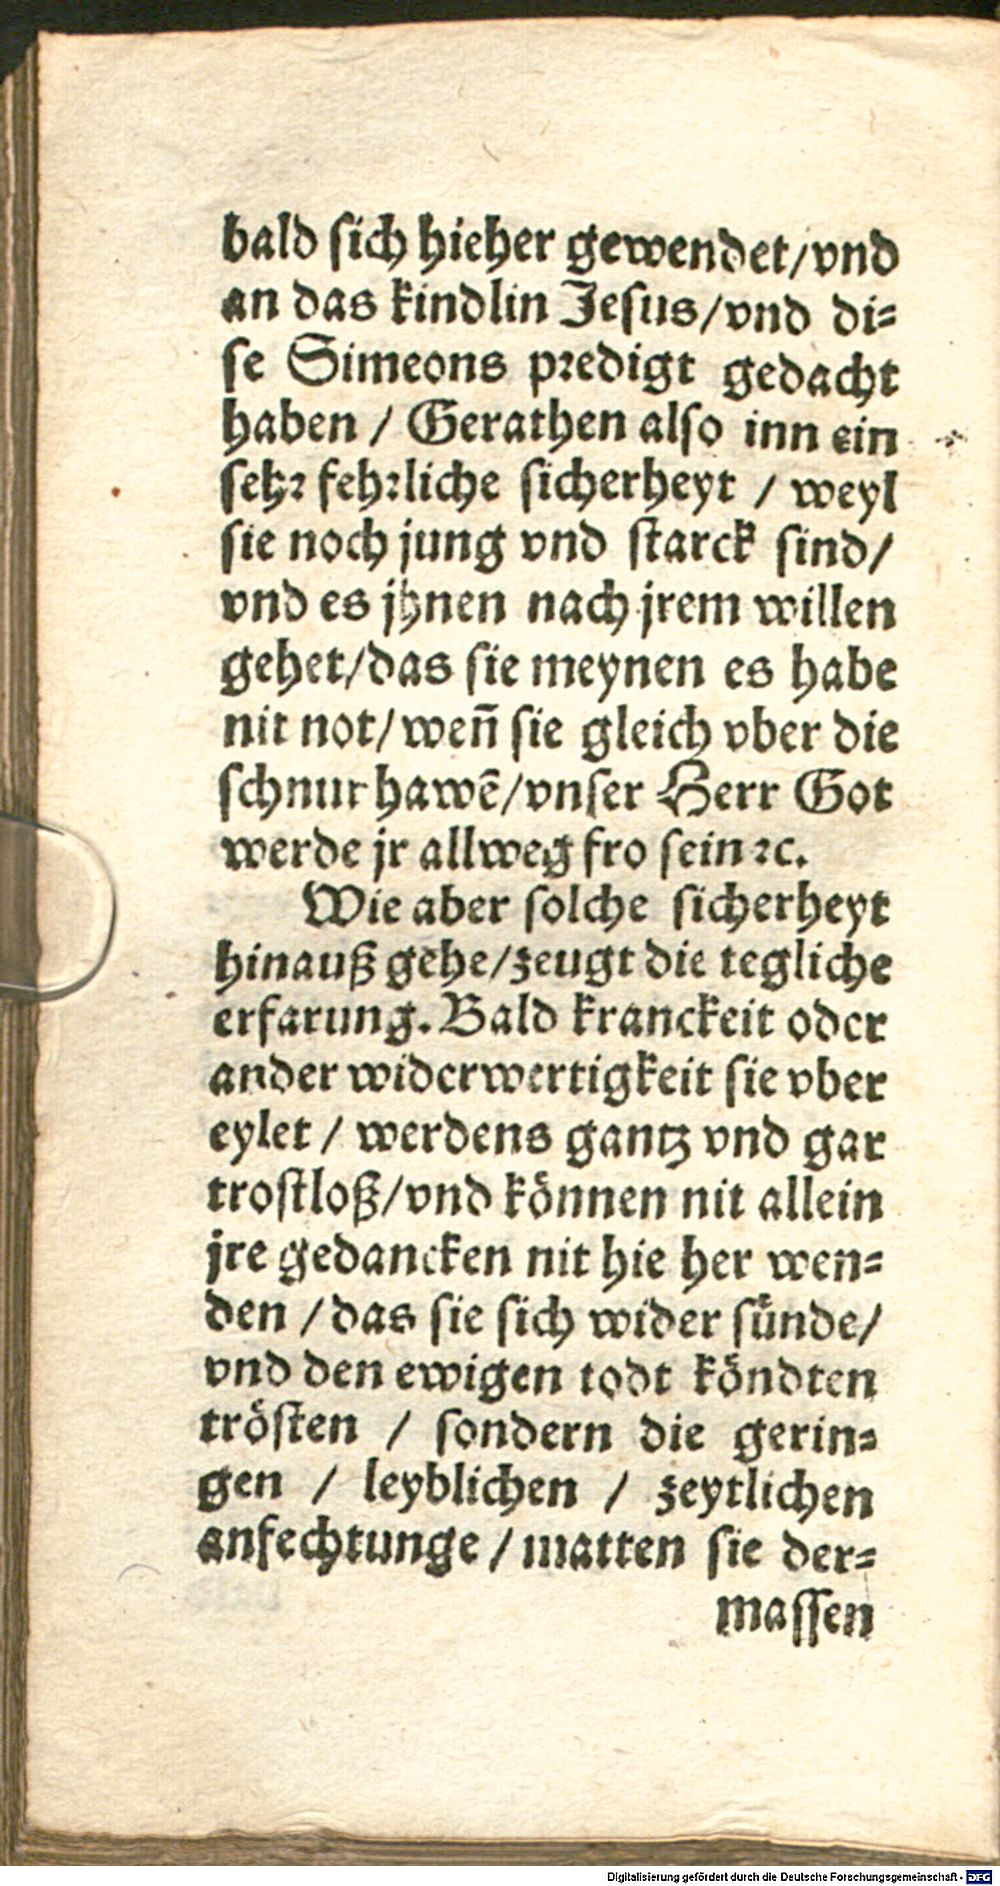 bald ſich hieher gewendet/vnd
an das kindlin Jeſus/vnd di⸗
ſe Simeons pꝛedigt gedacht
haben / Gerathen alſo inn ein
ſehꝛ fehꝛliche ſicherheyt / weyl
ſie noch jung vnd ſtarck ſind/
vnd es jhnen nach jrem willen
gehet/das ſie meynen es habe
nit not/weñ ſie gleich vber die
ſchnur hawẽ/vnſer Herr Got
werde jr allweg fro ſein ꝛc.
Wie aber ſolche ſicherheyt
hinauß gehe/zeugt die tegliche
erfarung. Bald kranckeit oder
ander widerwertigkeit ſie vber
eylet / werdens gantz vnd gar
troſtloß/vnd koͤnnen nit allein
jre gedancken nit hie her wen⸗
den / das ſie ſich wider ſuͤnde/
vnd den ewigen todt koͤndten
troͤſten / ſondern die gerin⸗
gen / leyblichen / zeytlichen
anfechtunge / matten ſie der⸗
maſſen
Digitalisierung gefördert durch die Deutsche Forschungsgemeinschaft - DFG